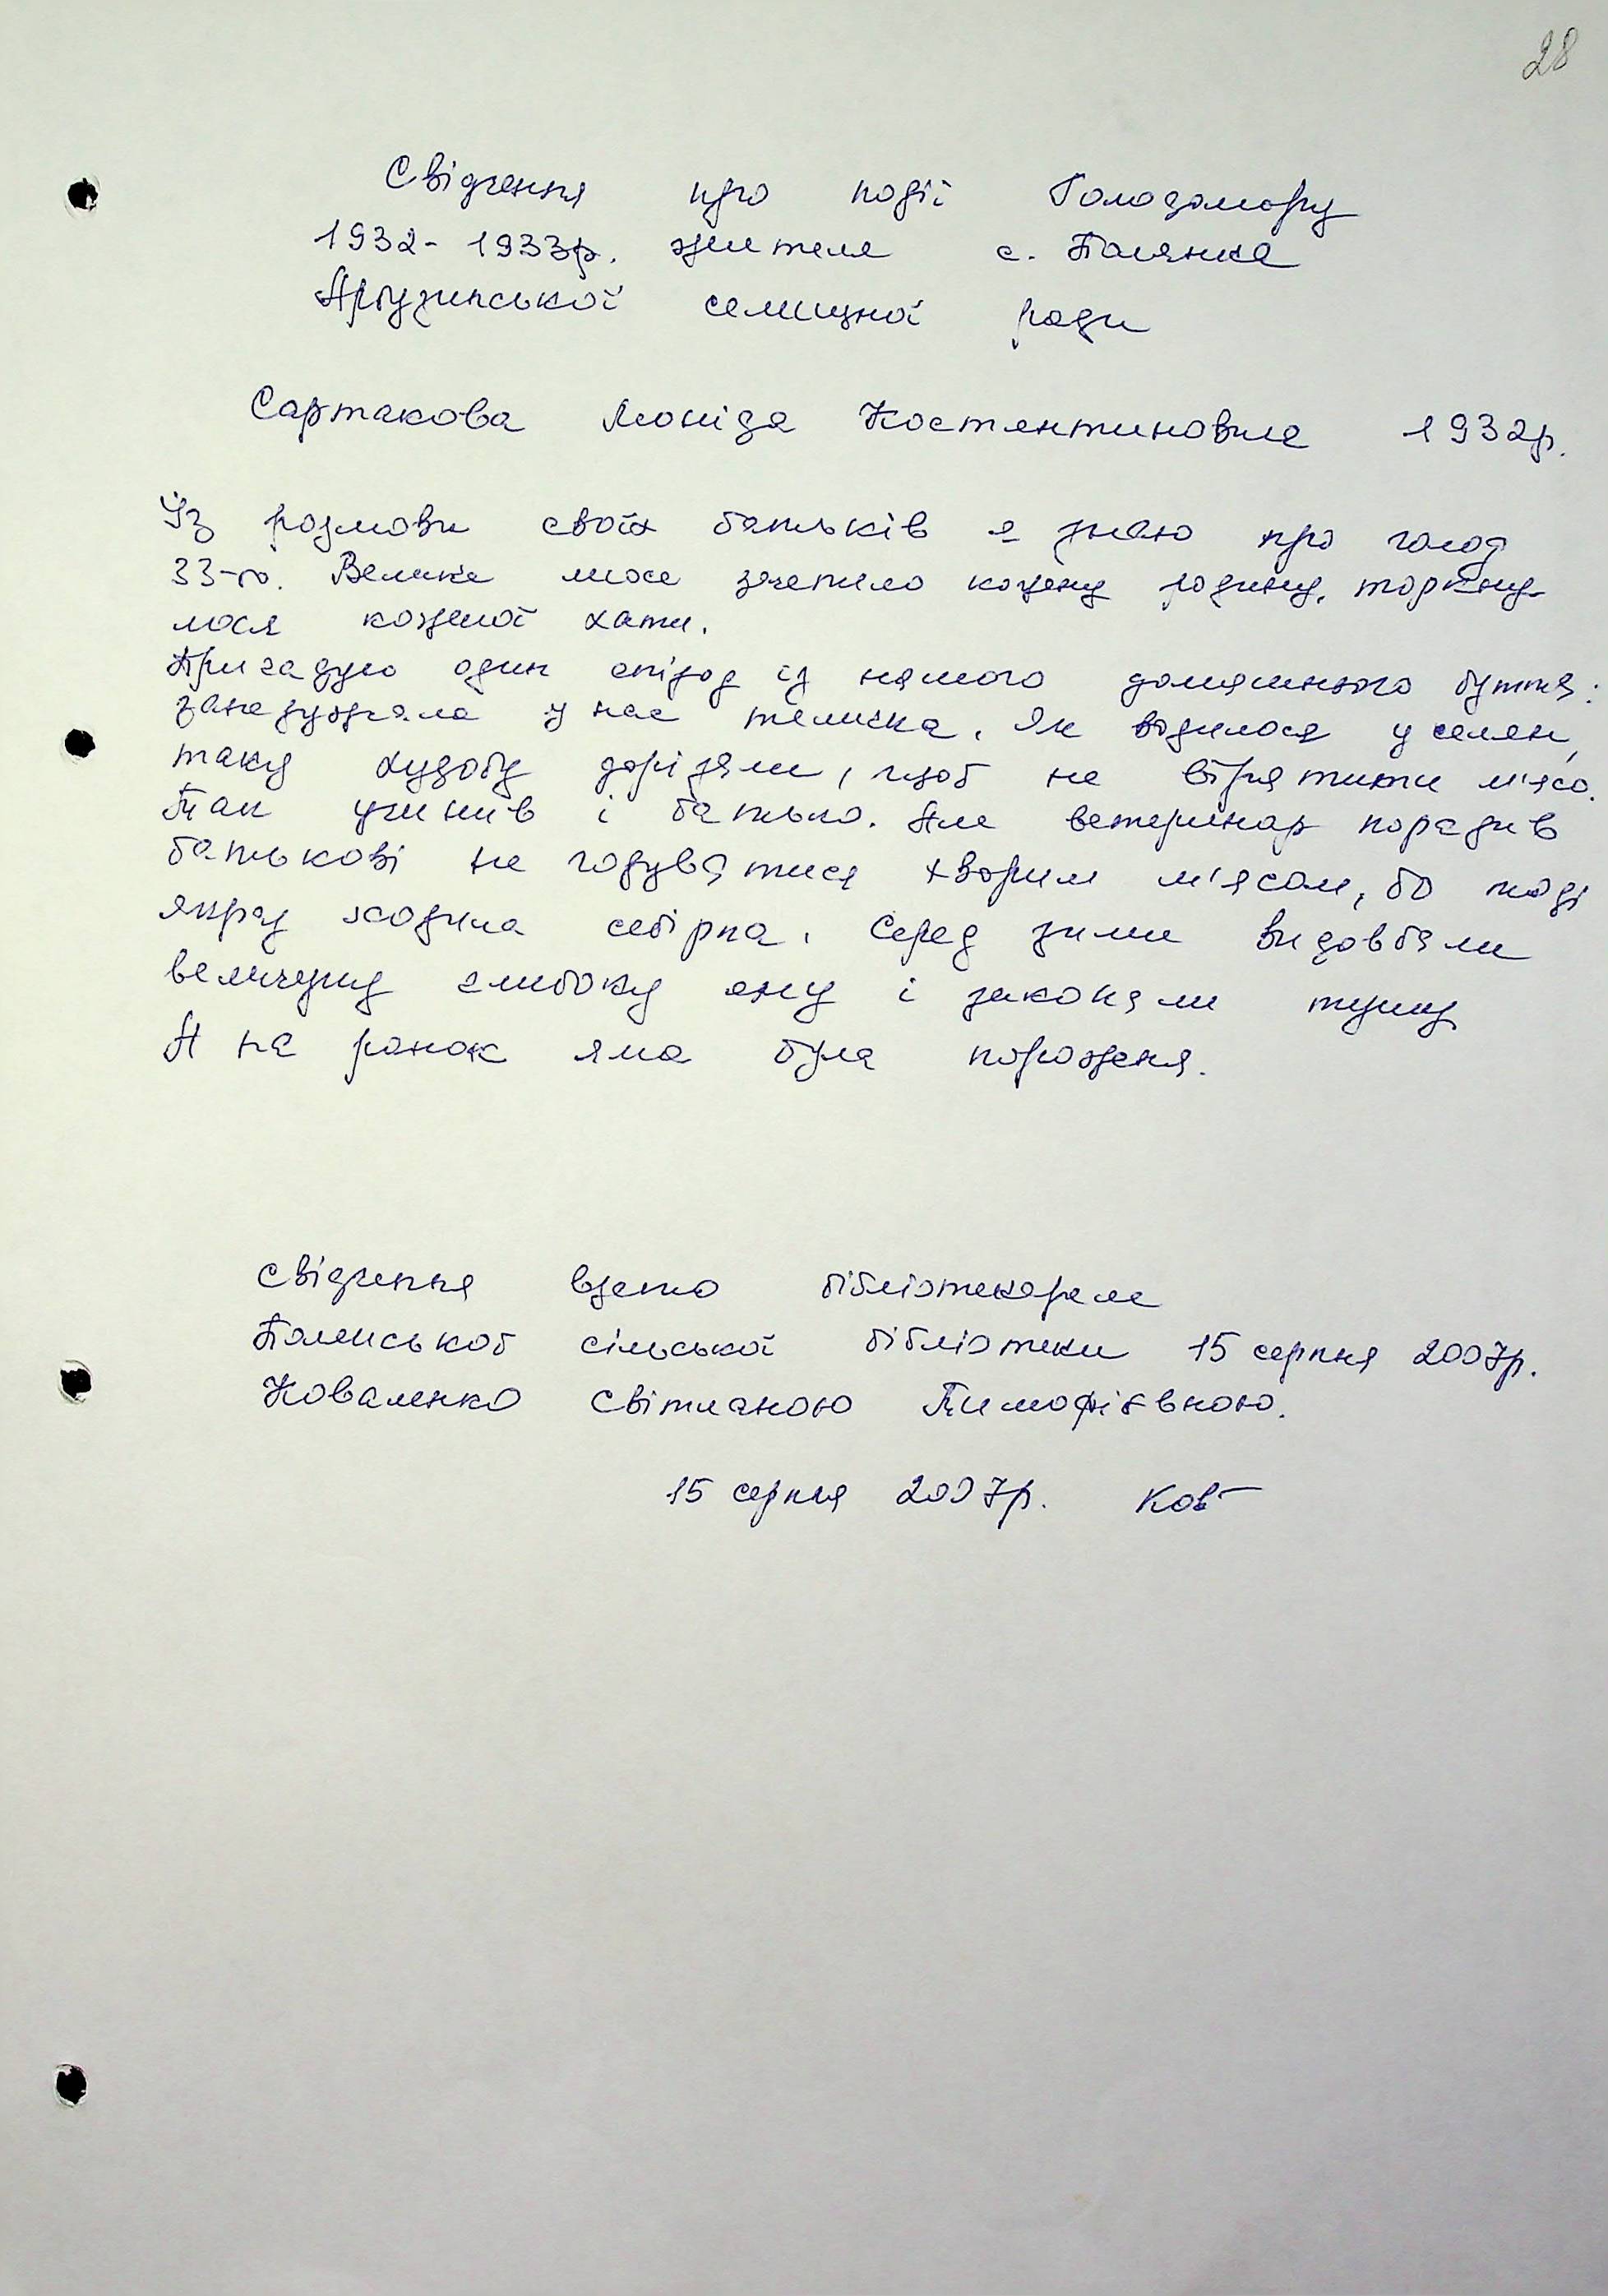 28
Свідчення про події Голодомору
1932-1933р. жителя с. Полянка
Арбузинської селищної ради
Сартакова Леоніда Костянтиновича 1932р.
Із розмови своїх батьків я знаю про голод
33-го. Велике лихо зачепило кожну родину, торкну-
лося кожної хати.
Пригадую один епізод із нашого домашнього буття:
занедужала у нас теличка. Як водилося у селян,
таку худобу дорізали, щоб не втратити м'ясо.
Так учинив і батько. Але ветеринар порадив
батькові не годуватися хворим м'ясом, бо тоді
якраз ходила сибірка. Серед зими видовбали
величезну глибоку яму і закопали тушу
А на ранок яма була порожня.
Свідчення взято бібліотекарем
Полянської сільської бібліотеки 15 серпня 2007р.
Коваленко Світланою Тимофіївною.
15 серпня 2007р. Ков